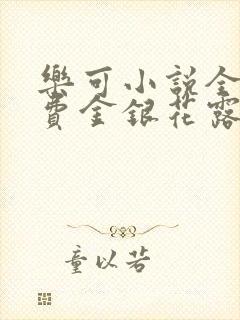 樂可小説全
費金銀花露
童以若